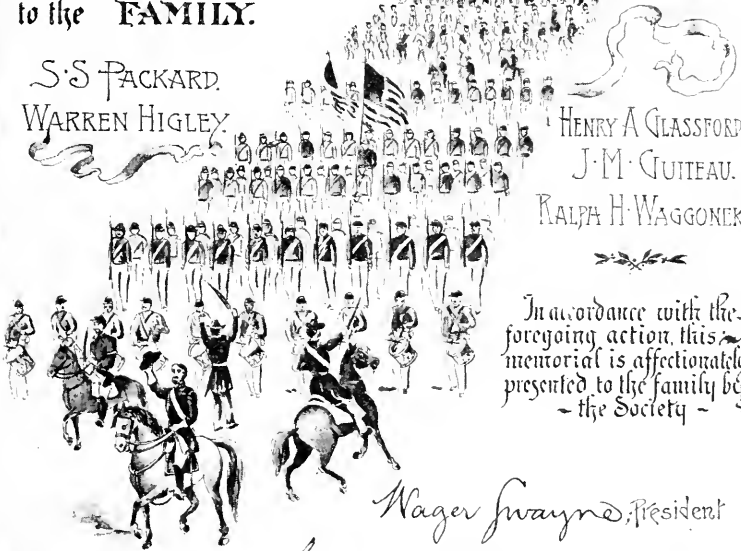 to the FAMILY.
S·S PACKARD.
WARREN HIGLEY.
HENRY A GLASSFORD
J·M· GUITEAU.
RALPH H· WAGGONER
In accordance with the
foregoing action, this
memorial is affectionately
presented to the family by
~ the Society ~
Wager Swayne, President